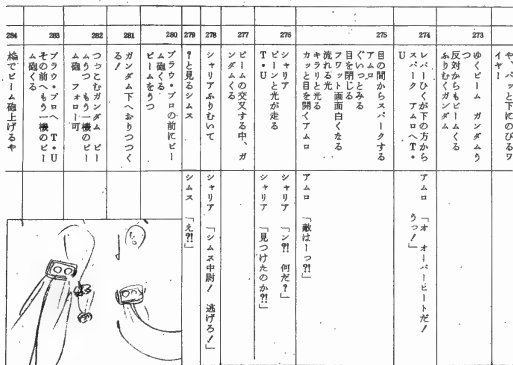 や、パッと下にのびるワ
イヤー
273
ゆくビーム ガンダムう
つ
反対からもビームくる
ふりむくガンダム
274
レバーひくが下の方から
スパーク アムロへT・
U
アムロ 「オ オーバーヒートだ!
うっ!」
275
目の間からスパークする
アムロ
ぐいっとみる
目を閉じる
フワット画面白くなる
流れる光
キラリと光る
カッと目を開くアムロ
アムロ 「敵はーっ?!」
276
シャリア
ピーンと光が走る
T・U
シャリア 「ン?! 何だ?」
シャリア 「見つけたのか?!」
277
ビームの交叉する中、ガ
ンダムくる
278
シャリアふりむいて
シャリア 「シムス中尉! 逃げろ!」
279
?と見るシムス
シムス 「え?!」
280
ブラウ・ブロの前にビー
ム砲くる
ビームをうつ
281
ガンダム下へおりつつく
る!
282
つっこむガンダム ビー
ムうつ もう一機のビー
ム砲 フォロー可
283
ブラウ・ブロへT・U
その前へもう一機のビー
ム砲くる
284
輪でビーム砲上げるや